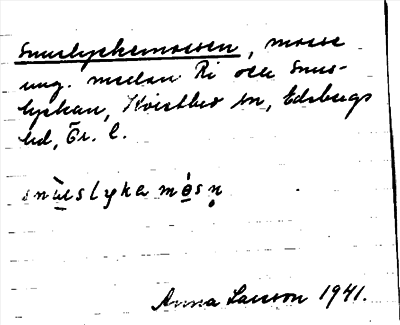 Snuslyckemossen, mosse
ung. mellan Ri och Snus-
lyckan, Kvistbro sn, Edsbergs
hd, Ör. l.
snùslyka mòsn̥
Anna Larsson 1941.